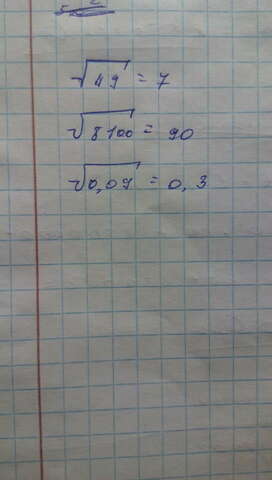 √49 = 7
√8100 = 90
√0,09 = 0,3